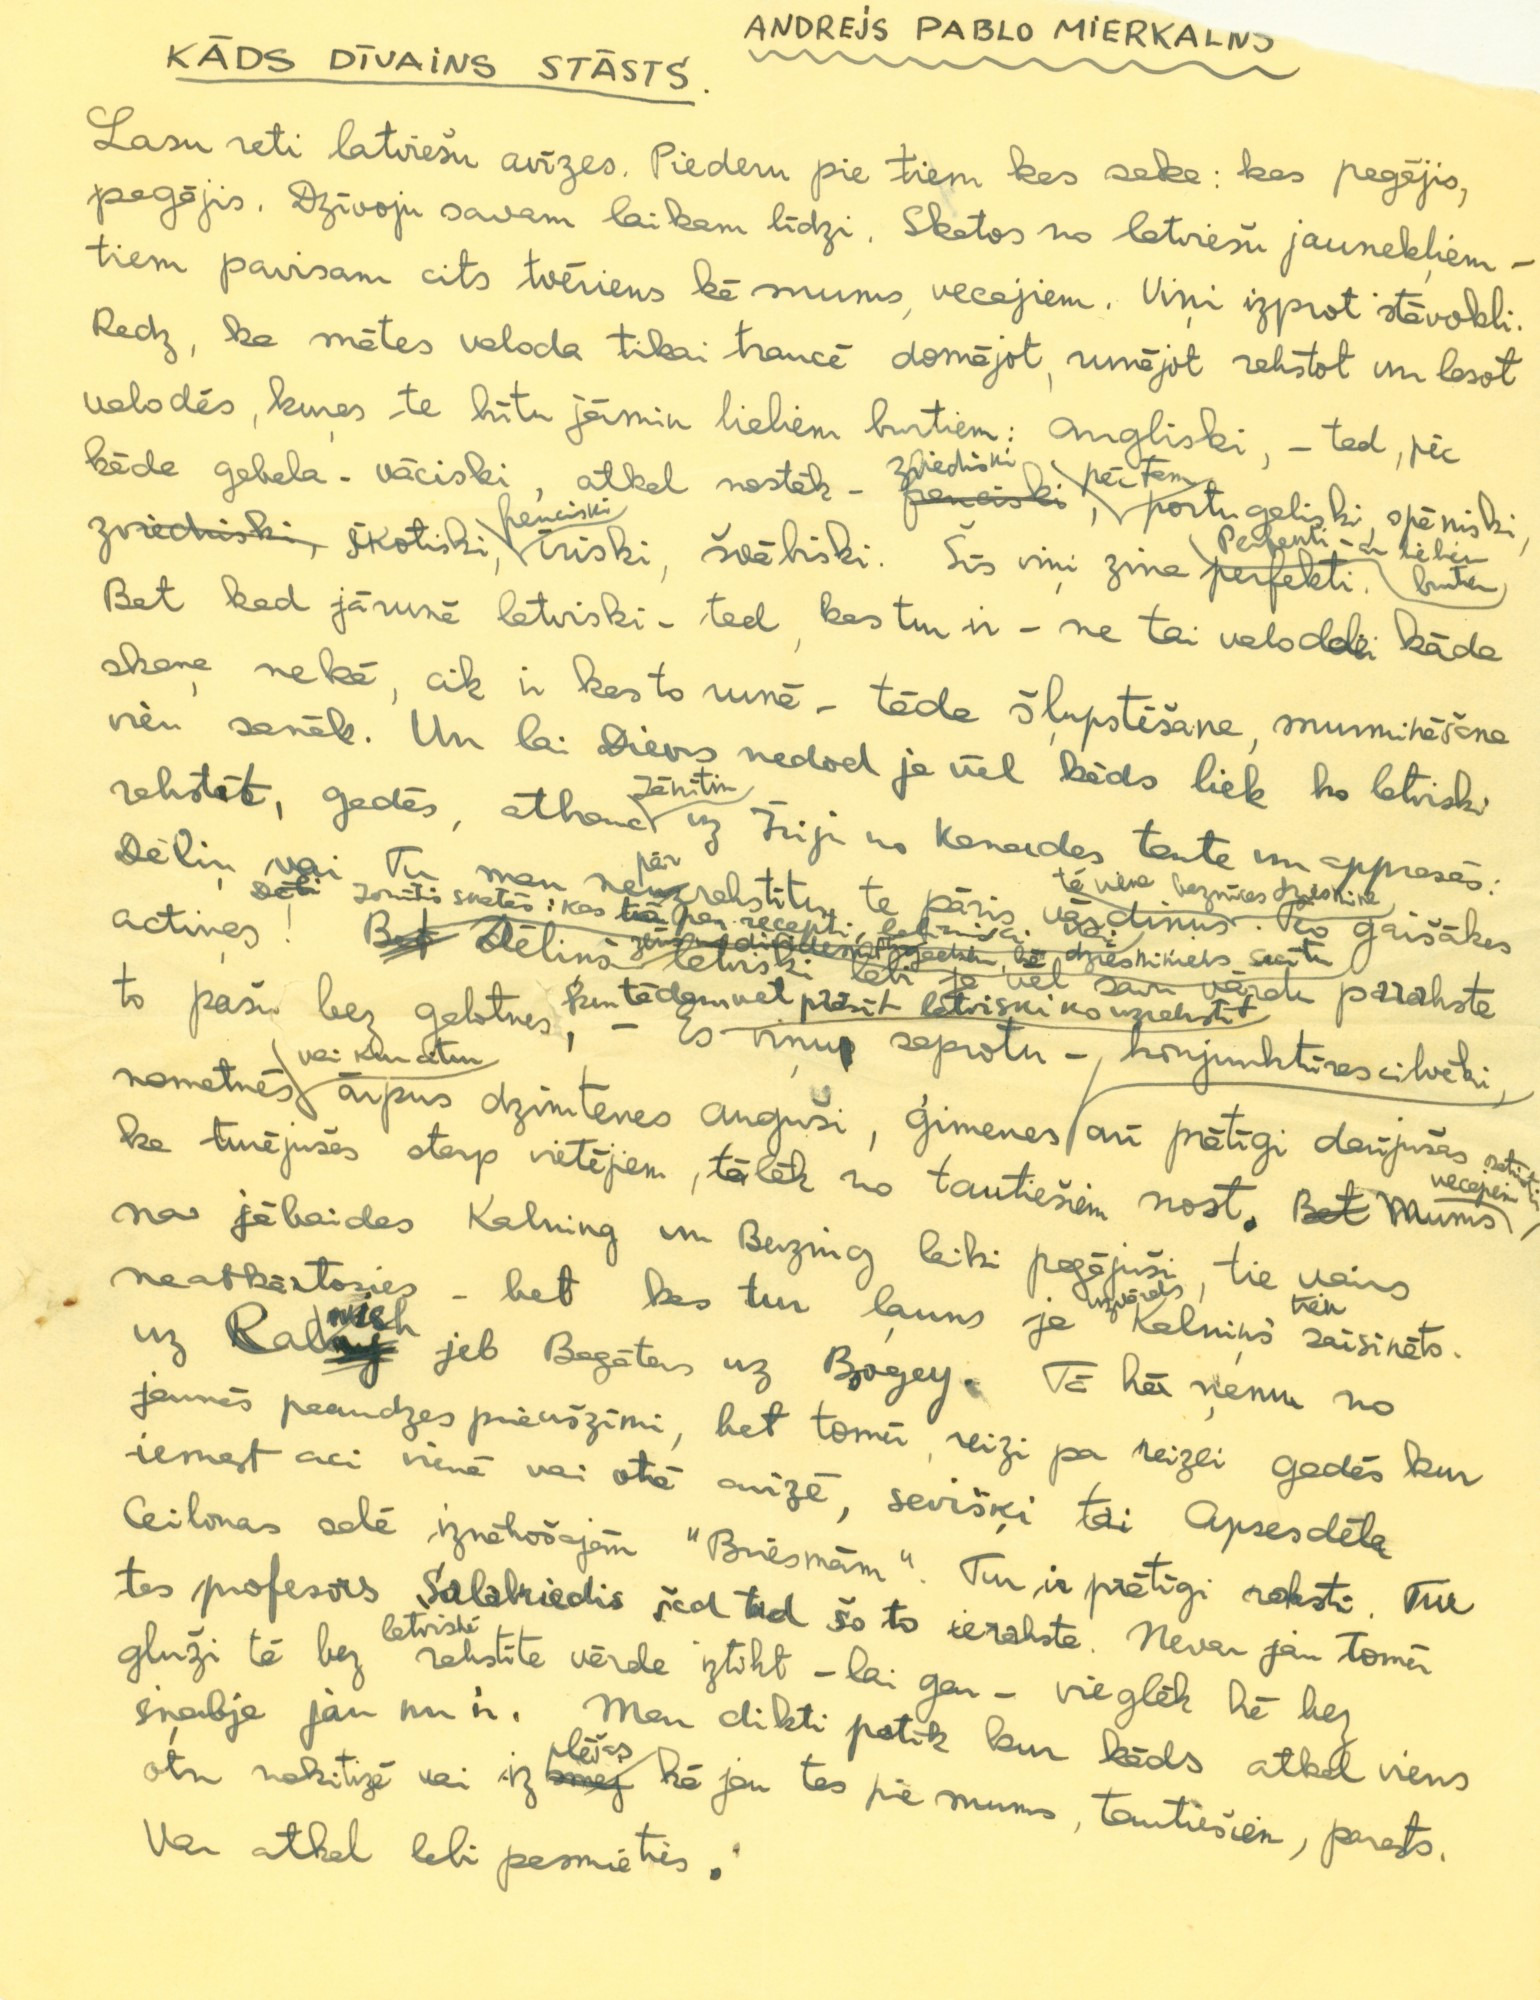 ANDREJS PABLO MIERKALNS
KĀDS DĪVAINS STĀSTS.
Lasu reti latviešu avīzes. Piederu pie tiem kas saka: kas pagājis,
pagājis. Dzīvoju savam laikam līdzi. Skatos no latviešu jaunekļiem –
tiem pavisam cits tvēriens kā mums, vecajiem. Viņi izprot stāvokli.
Redz, ka mātes valoda tikai traucē domājot, runājot rakstot un lasot
valodās, kuŗas te būtu jāmin lieliem burtiem: angliski, – tad, pēc
kāda gabala – vāciski, atkal nostāk – zviedriski franciski, pēc tam portugaliski, spāniski,
zviedriski, skotiski, franciski īriski, švābiski. Šīs viņi zina perfekti. Perfekti – ar lieliem burtiem
Bet kad jārunā latviski – tad, kas tur ir – ne tai valodai kāda
skaņa nekā, cik ir kas to runā – tāda šļupstēšana, murmināšana
vien sanāk. Un lai Dievs nedod ja vēl kāds liek ko latviski
rakstīt, gadās, atbrauc Jānītim uz Īriju no Kanadas tante un apprasās:
Dēliņ, vai Tu man nerakstītu te pāris vārdiņus. Ko gaišākas
actiņas! Bet Dēliņš latviski labi ja vēl savu vārdu paraksta
to pašu bez galotnes, kur tādam vēl prasīt latviski ko uzrakstīt – Es viņus saprotu – konjunktūras cilvēki,
nometnēs vai kur citur ārpus dzimtenes auguši, ģimenes arī prātīgi darījušas
ka turējušās starp vietējiem, tālāk no tautiešiem nost. Bet Mums vecajiem
nav jābaidas Kalning un Berzing laiki pagājuši, tie vairs
neatkārtosies – bet kas tur ļauns ja uzvārds Kalniņš tiek saīsināts.
uz jeb Bagātais uz Bogey. Tā kā ņemu no
jaunās paaudzes priekšzīmi, bet tomēr, reizi pa reizei gadās kur
iemest aci vienā vai otrā avīzē, sevišķi tai Apsesdēla
Ceilonas salā iznākošajām "Briesmām". Tur ir prātīgi raksti. Tur
tas profesors Salabriedis šad tad šo to ieraksta. Nevar jau tomēr
gluži tā bez latviski rakstīta vārda iztikt – lai gan – vieglāk kā bez
šņabja jau nu ir. Man dikti patīk kur kāds atkal viens
otru nokritizē vai izplēšas kā jau tas pie mums, tautiešiem, parasts.
Var atkal labi pasmieties.